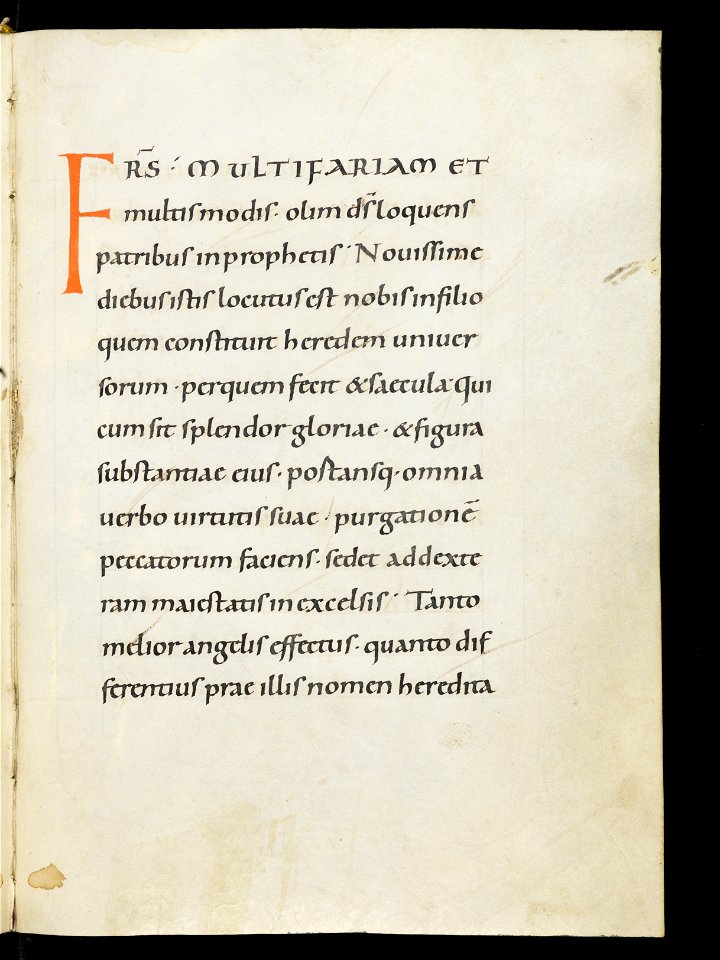 FR̄S · MULTIFARIAM ET
multis modis · olim ds̄ loquens
patribus in prophetis · Nouissime
diebus istis locutus est nobis in filio
quem constituit heredem uniuer
sorum · per quem fecit & saecula · qui
cum sit splendor gloriae · & figura
substantiae eius · postansq · omnia
uerbo uirtutis suae · purgationē
peccatorum faciens · sedet ad dexte
ram maiestatis in excelsis · Tanto
melior angelis effectus · quanto dif
ferentius prae illis nomen heredita